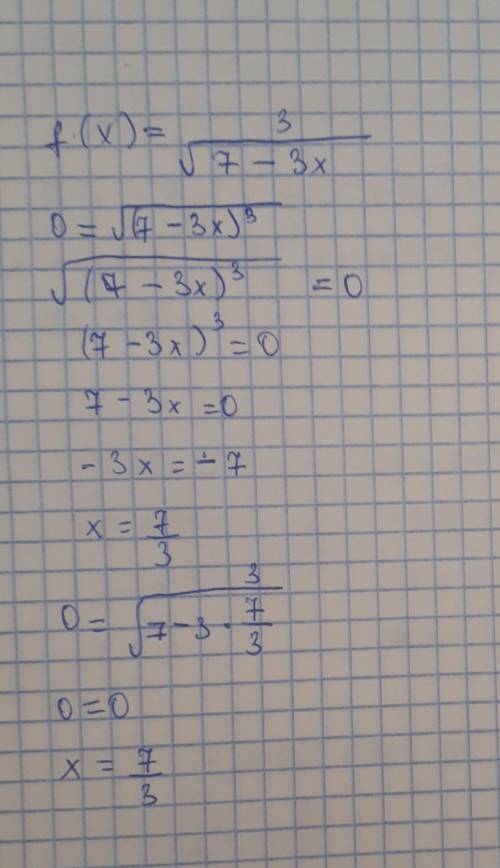 f(x) = 3/√(7 - 3x)
0 = √(7 - 3x)³
√((7 - 3x)³) = 0
(7 - 3x)³ = 0
7 - 3x = 0
- 3x = - 7
x = 7/3
0 = √(7 - 3 · 7/3)³
0 = 0
x = 7/3